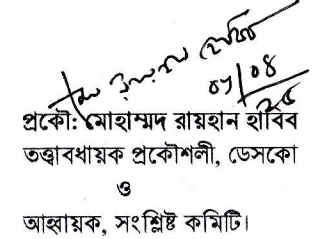 ০৭/০৪
২৫
প্রকৌ: মোহাম্মদ রায়হান হাবিব
তত্ত্বাবধায়ক প্রকৌশলী, ডেসকো
ও
আহ্বায়ক, সংশ্লিষ্ট কমিটি।